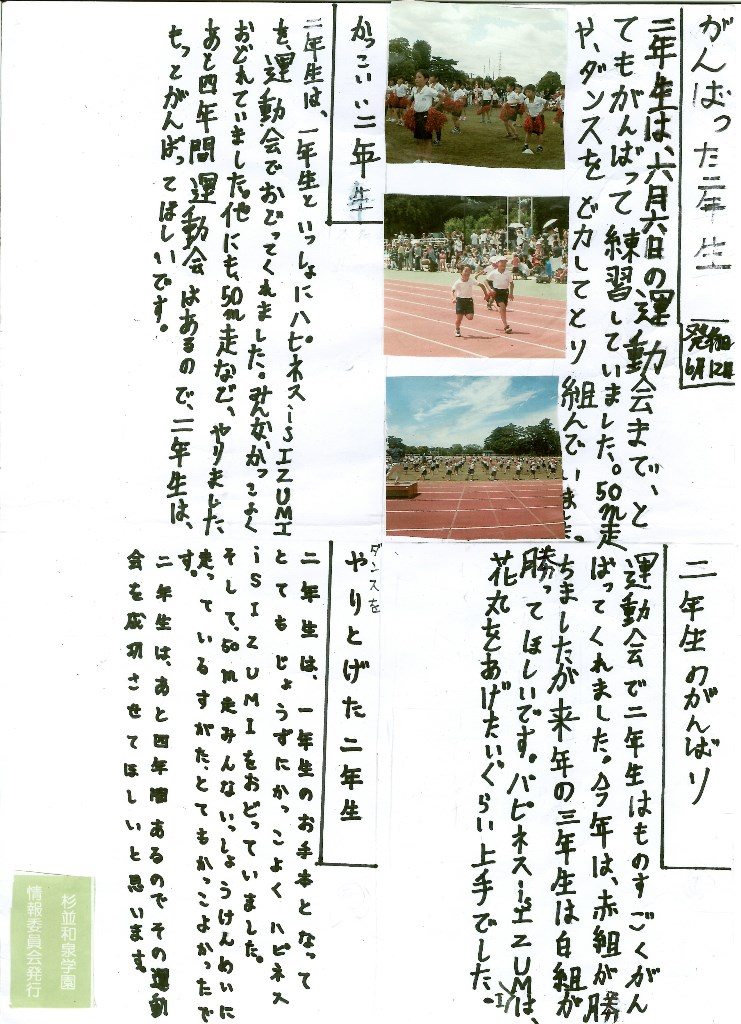 がんばった二年生
発行日
6月12日
二年生は、六月六日の運動会まで、と
てもがんばって練習していました。50m走
や、ダンスをどカしてとり組んでいました。
かっこいい二年生
二年生は、一年生といっしょにハピネスiSIZUMI
を、運動会でおどってくれました。みんな、かっこよく
おどれていました。他にも、50m走など、やりました
あと四年間運動会はあるので、二年生は、
もっとがんばってほしいです。
二年生のがんばり
運動会で二年生はものすごくがん
ばってくれました。今年は、赤組が勝
ちましたが来年の三年生は白組が
勝ってほしいです。ハピネスisIZUMIは、
花丸をあげたいくらい上手でした。
ダンスを
やりとげた二年生
二年生は、一年生のお手本となって
とてもじょうずにかっこよくハピネス
iSIZUMIをおどっていました。
そして、50m走みんないっしょうけんめいに
走っているすがた、とてもかっこよかったで
す。
二年生は、あと四年間あるのでその運動
会を成功させてほしいと思います。
杉並和泉学園
情報委員会発行